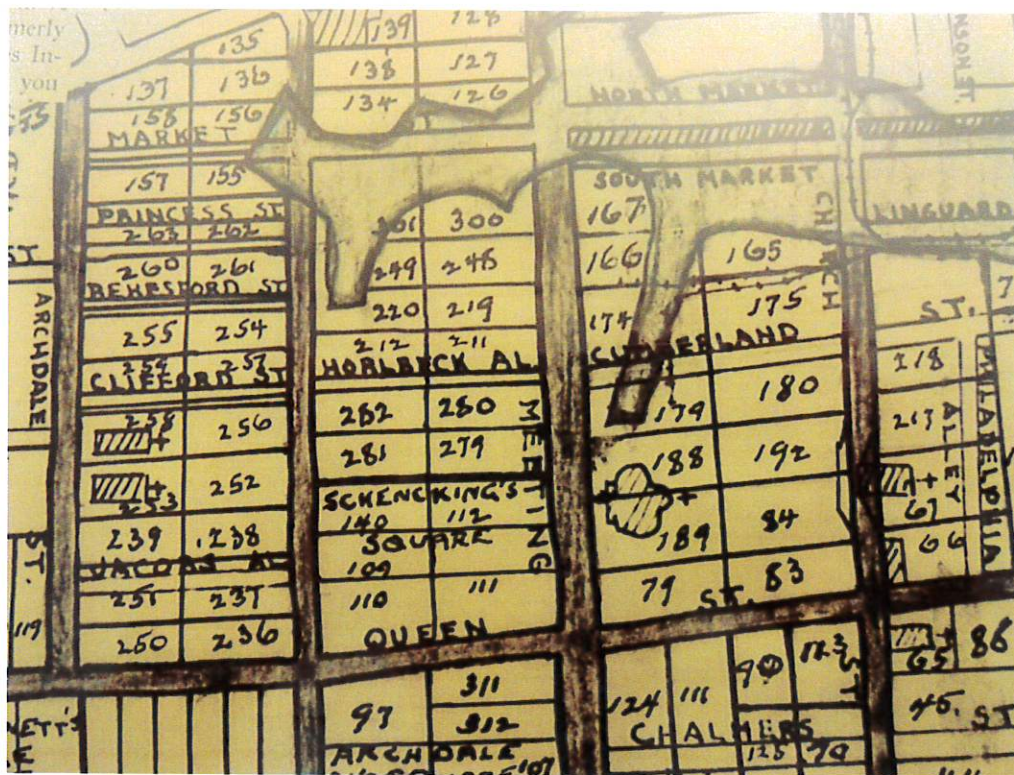 merly
s In-
you
135
137 136
158 156
MARKET
157 155
PRINCESS ST
263 262
260 261
BEHESFORD ST
255 254
259 257
CLIFFORD ST
258
256
252
253
239 238
JACOBS AL
251 237
250 236
ARCHDALE
ST.
119
NETT'S
139 128
138 127
134 126
ST
301 300
249 248
220 219
212 211
HORLBECK AL.
282 280
281 279
SCHENCKING'S
140 112
SQUARE
109
110 111
QUEEN
MEETING
311
97
312
ARCHDALE
107
NORTH MARKET
SOUTH MARKET
167
166 165
174 175
CUMBERLAND
179 180
188 192
189 84
79 83
ST.
124 111 90
CHALMERS
ST
125 70
CHURCH
NSON ST.
LINGUARD
ST. 7
218
217
ALLEY
PHILADELPHIA
67
66
65 86
45. ST